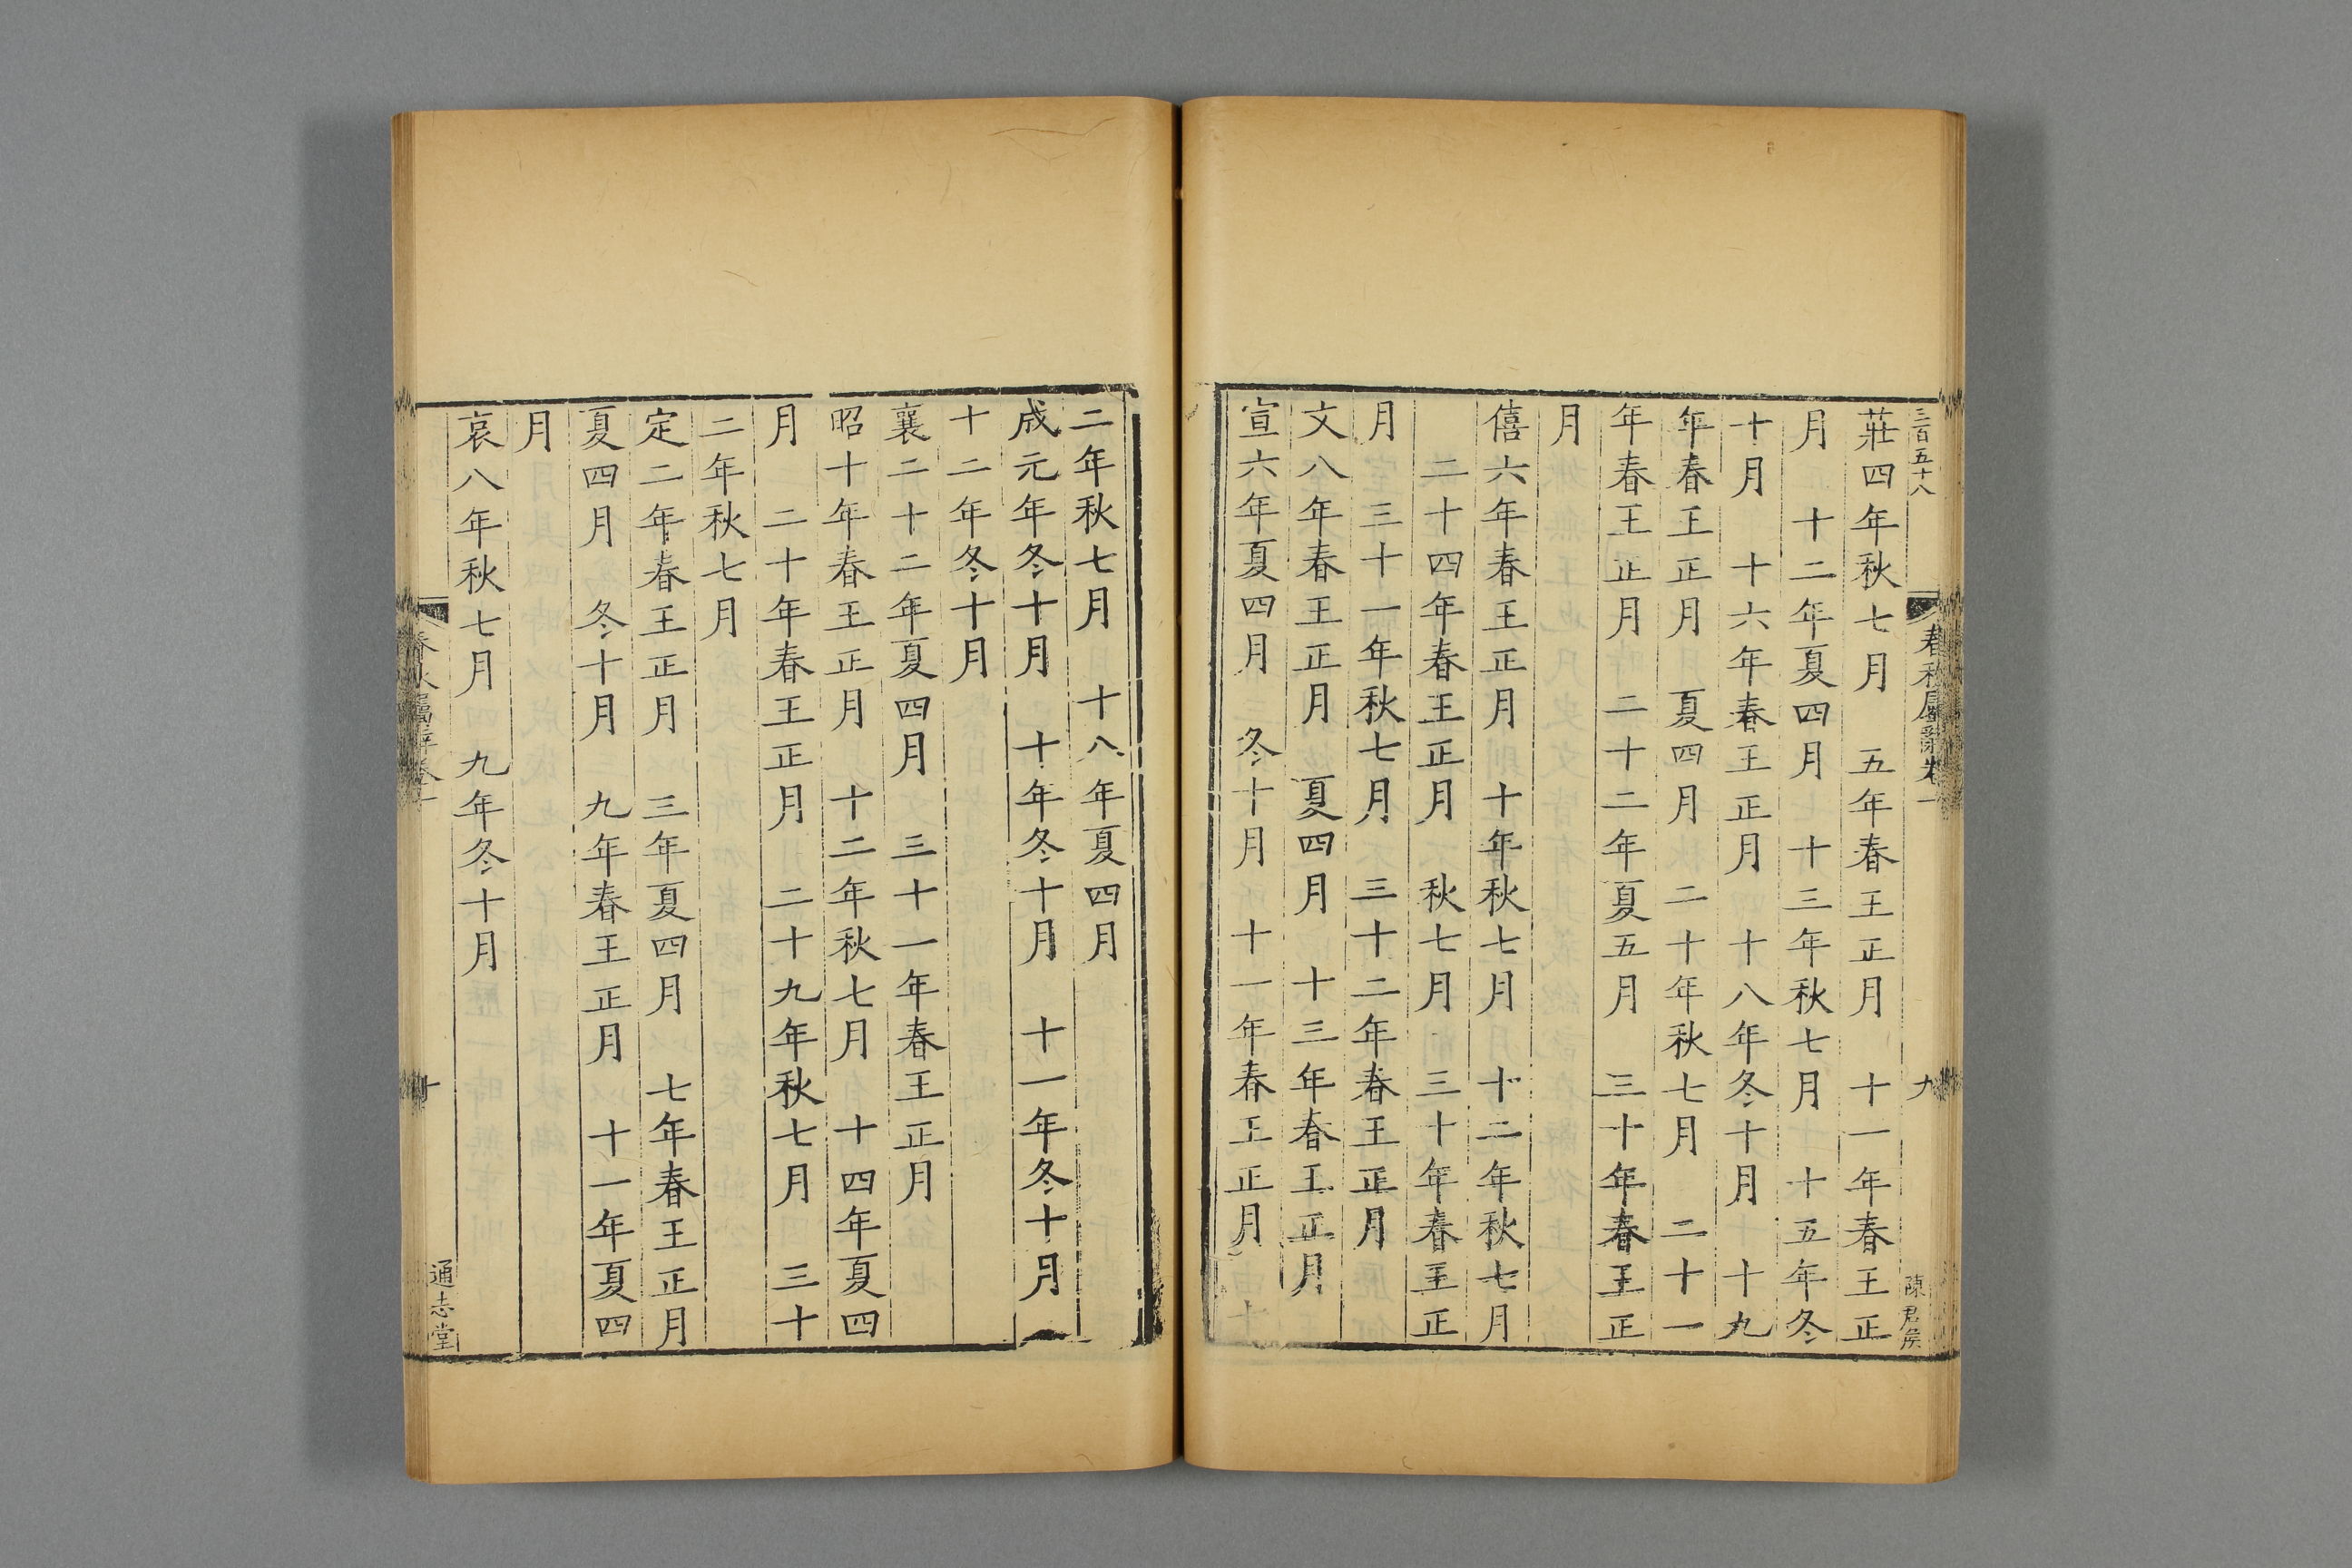 三百五十八
春秋屬辭卷一
九
陳君侯
莊四年秋七月　五年春王正月　十一年春王正
月　十二年夏四月　十三年秋七月　十五年冬
十月　十六年春王正月　十八年冬十月　十九
年春王正月　夏四月　二十年秋七月　二十一
年春王正月　二十二年夏五月　三十年春王正
月
僖六年春王正月　十年秋七月　十二年秋七月
二十四年春王正月　秋七月　三十年春王正
月　三十一年秋七月　三十二年春王正月
文八年春王正月　夏四月　十三年春王正月
宣六年夏四月　冬十月　十一年春王正月
二年秋七月　十八年夏四月
成元年冬十月　十年冬十月　十一年冬十月
十二年冬十月
襄二十二年夏四月　三十一年春王正月
昭十年春王正月　十二年秋七月　十四年夏四
月　二十年春王正月　二十九年秋七月　三十
二年秋七月
定二年春王正月　三年夏四月　七年春王正月
夏四月　冬十月　九年春王正月　十一年夏四
月
哀八年秋七月　九年冬十月
春秋屬辭卷一
十
通志堂